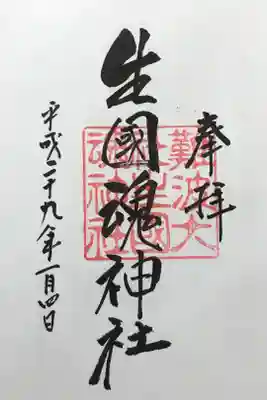 奉拝
難波大
社生國
魂神社
生國魂神社
平成二十九年一月四日